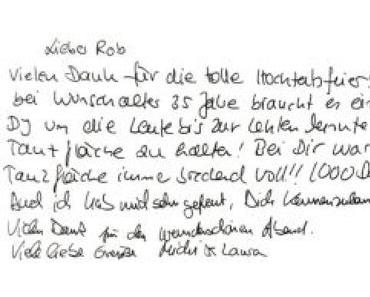 Lieber Rob
Vielen Dank für die tolle Hochzeitsfeier
bei 35 Jahre braucht es ein
DJ um die Leute bis zur letzten Minute
Tanzfläche zu halten! Bei Dir war
Tanzfläche immer voll!! 1000 D
Auch ich hab mich sehr gefreut, Dich kennenzulern
Vielen Dank für den wunderschönen Abend.
Viele liebe Grüsse & Laura